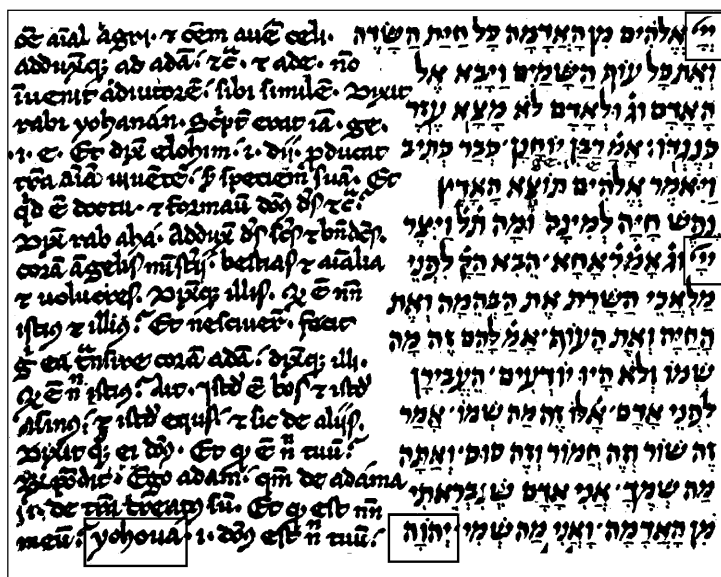 oē aīal agri · ⁊ oēm auē celi ·
adduxq̄; ad adā · ⁊c̄ · ⁊ ade · nō
īuenit̄ adiutorē · sibi similē · Dixit
rabi yohanan · Sc̄ptū erat iā · ge ·
· i · e · Et dix̄ elohim · i · dij · p̄ducat
tr̄a aīā uiuētē · ī speciem suā · Et
q̄d ē doctu · ⁊ formau̅ dōs d̄s ⁊c̄ :
Dix̄ rab aha · Addux̄ d̄s sc̄s ⁊ bn̄dc̄s ·
corā āgelis mīst̄ij · bestias ⁊ aīalia
⁊ uolucres · Dix̄q; illis · Q̄ ē nn̄
istius ⁊ illius : Et nesciuer̄ · fecit
ḡ ea t̄nsire corā adā · dix̄q; illi ·
Q̄ ē n̄ istius : Ait · Istd̄ ē bos ⁊ istd̄
asinus : ⁊ istd̄ equs : ⁊ sic de aliis ·
Dixit q; ei dōs · Et q̄ ē n̄ tuū :
R̄spōdit · Ego adam : qm̄ de adāma
· i · de tr̄a creatus sū · Et q̄ est nn̄
meū : yohoua · i · dōs est n̄ tuū :
יְיָ אֱלֹהִים מִן הָאֲדָמָה כָּל חַיַּת הַשָּׂדֶה
וְאֶת כָּל עוֹף הַשָּׁמַיִם וַיָּבֵא אֶל
הָאָדָם וג̇ וּלְאָדָם לֹא מָצָא עֵזֶר
כְּנֶגְדּוֹ: אָמַ̇ רַבָּן יוֹחָנָן· כְּבָר כְּתִיב
ge · i · e
וַיֹּאמֶר אֱלֹהִים תּוֹצֵא הָאָרֶץ
נֶפֶשׁ חַיָּה לְמִינָהּ וּמַה תַּ̇ל̇ וַיִּצֶר
יְיָ וג̇ אָמַ̇ ר̇ אֲחָא· הֵבִא הַקָ̇ לִפְנֵי
מַלְאֲכֵי הַשָּׁרֵת אֶת הַבְּהֵמָה וְאֶת
הַחַיָּה וְאֶת הָעוֹף· אָמַ̇ לָהֶם זֶה מָה
שְׁמוֹ וְלֹא הָיוּ יוֹדְעִים· הֶעֱבִירָן
לִפְנֵי אָדָם· אָ̇ לוֹ זֶה מַה שְּׁמוֹ· אָמַר
זֶה שׁוֹר וְזֶה חֲמוֹר וְזֶה סוּס· וְאַתָּה
מַה שִּׁמְךָ· אֲנִי אָדָם שֶׁנִּבְרֵאתִי
מִן הָאֲדָמָה· וַאֲנִי מַה שְּׁמִי· יְהֹוָה